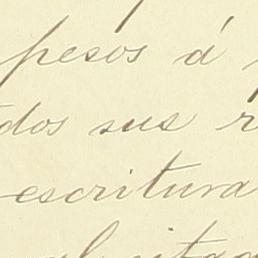 pesos á
dos sus
escritura